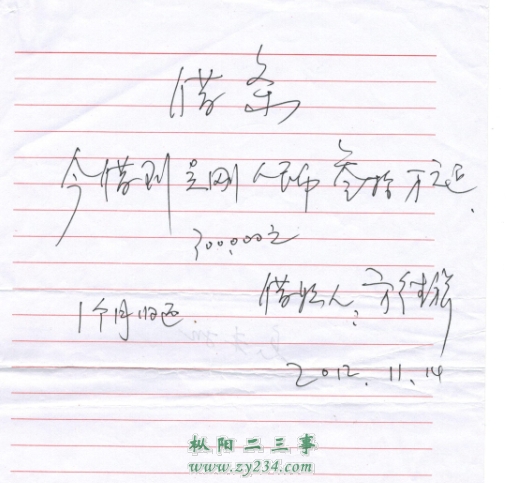 借条
今借到吴刚人民币叁拾万元
300,000元
借款人:
1个月归还.
2012.11.14
枞阳二三事
www.zy234.com